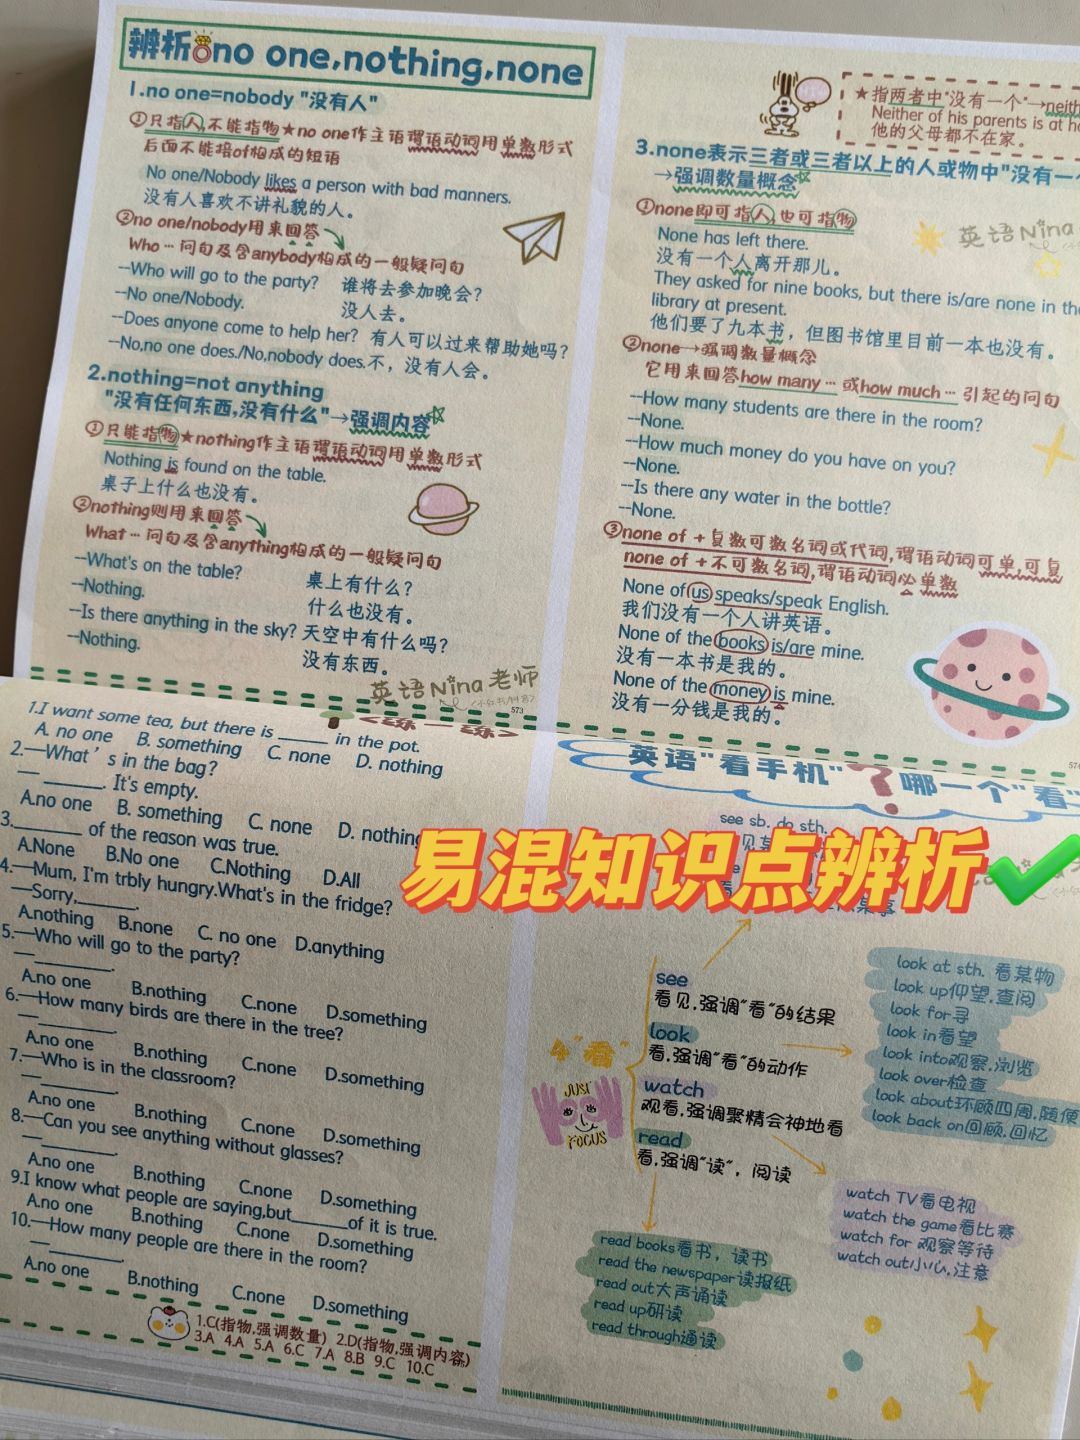 辨析no one,nothing,none
1.no one=nobody "没有人"
①只指人,不能指物★no one作主语谓语动词用单数形式
后面不能接of构成的短语
No one/Nobody likes a person with bad manners.
没有人喜欢不讲礼貌的人。
②no one/nobody用来回答
Who…问句及含anybody构成的一般疑问句
--Who will go to the party? 谁将去参加晚会?
--No one/Nobody. 没人去。
--Does anyone come to help her? 有人可以过来帮助她吗?
--No,no one does./No,nobody does.不，没有人会。
2.nothing=not anything
"没有任何东西,没有什么"→强调内容
①只能指物★nothing作主语谓语动词用单数形式
Nothing is found on the table.
桌子上什么也没有。
②nothing则用来回答
What…问句及含anything构成的一般疑问句
--What's on the table? 桌上有什么?
--Nothing. 什么也没有。
--Is there anything in the sky? 天空中有什么吗?
--Nothing. 没有东西。
英语Nina老师
573
★指两者中"没有一个"→neith
Neither of his parents is at ho
他的父母都不在家。
3.none表示三者或三者以上的人或物中"没有一
→强调数量概念
①none即可指人,也可指物
英语Nina
None has left there.
没有一个人离开那儿。
They asked for nine books, but there is/are none in the
library at present.
他们要了九本书，但图书馆里目前一本也没有。
②none→强调数量概念
它用来回答how many…或how much…引起的问句
--How many students are there in the room?
--None.
--How much money do you have on you?
--None.
--Is there any water in the bottle?
--None.
③none of +复数可数名词或代词,谓语动词可单,可复
none of +不可数名词,谓语动词必单数
None of us speaks/speak English.
我们没有一个人讲英语。
None of the books is/are mine.
没有一本书是我的。
None of the money is mine.
没有一分钱是我的。
574
<练一练>
1.I want some tea, but there is _____ in the pot.
A. no one B. something C. none D. nothing
2.—What's in the bag?
—______. It's empty.
A.no one B. something C. none D. nothing
3._______ of the reason was true.
A.None B.No one C.Nothing D.All
4.—Mum, I'm trbly hungry.What's in the fridge?
—Sorry,______.
A.nothing B.none C. no one D.anything
5.—Who will go to the party?
—________.
A.no one B.nothing C.none D.something
6.—How many birds are there in the tree?
—________.
A.no one B.nothing C.none D.something
7.—Who is in the classroom?
—________.
A.no one B.nothing C.none D.something
8.—Can you see anything without glasses?
—________.
A.no one B.nothing C.none D.something
9.I know what people are saying,but______of it is true.
A.no one B.nothing C.none D.something
10.—How many people are there in the room?
—________.
A.no one B.nothing C.none D.something
1.C(指物,强调数量) 2.D(指物,强调内容)
3.A 4.A 5.A 6.C 7.A 8.B 9.C 10.C
英语"看手机"?哪一个"看"
see sb. do sth.
易混知识点辨析
4"看"
JUST
FOCUS
see
看见,强调"看"的结果
look
看,强调"看"的动作
watch
观看,强调聚精会神地看
read
看,强调"读"，阅读
look at sth. 看某物
look up仰望,查阅
look for寻
look in看望
look into观察,浏览
look over检查
look about环顾四周,随便
look back on回顾,回忆
watch TV看电视
watch the game看比赛
watch for 观察等待
watch out小心,注意
read books看书，读书
read the newspaper读报纸
read out大声诵读
read up研读
read through通读